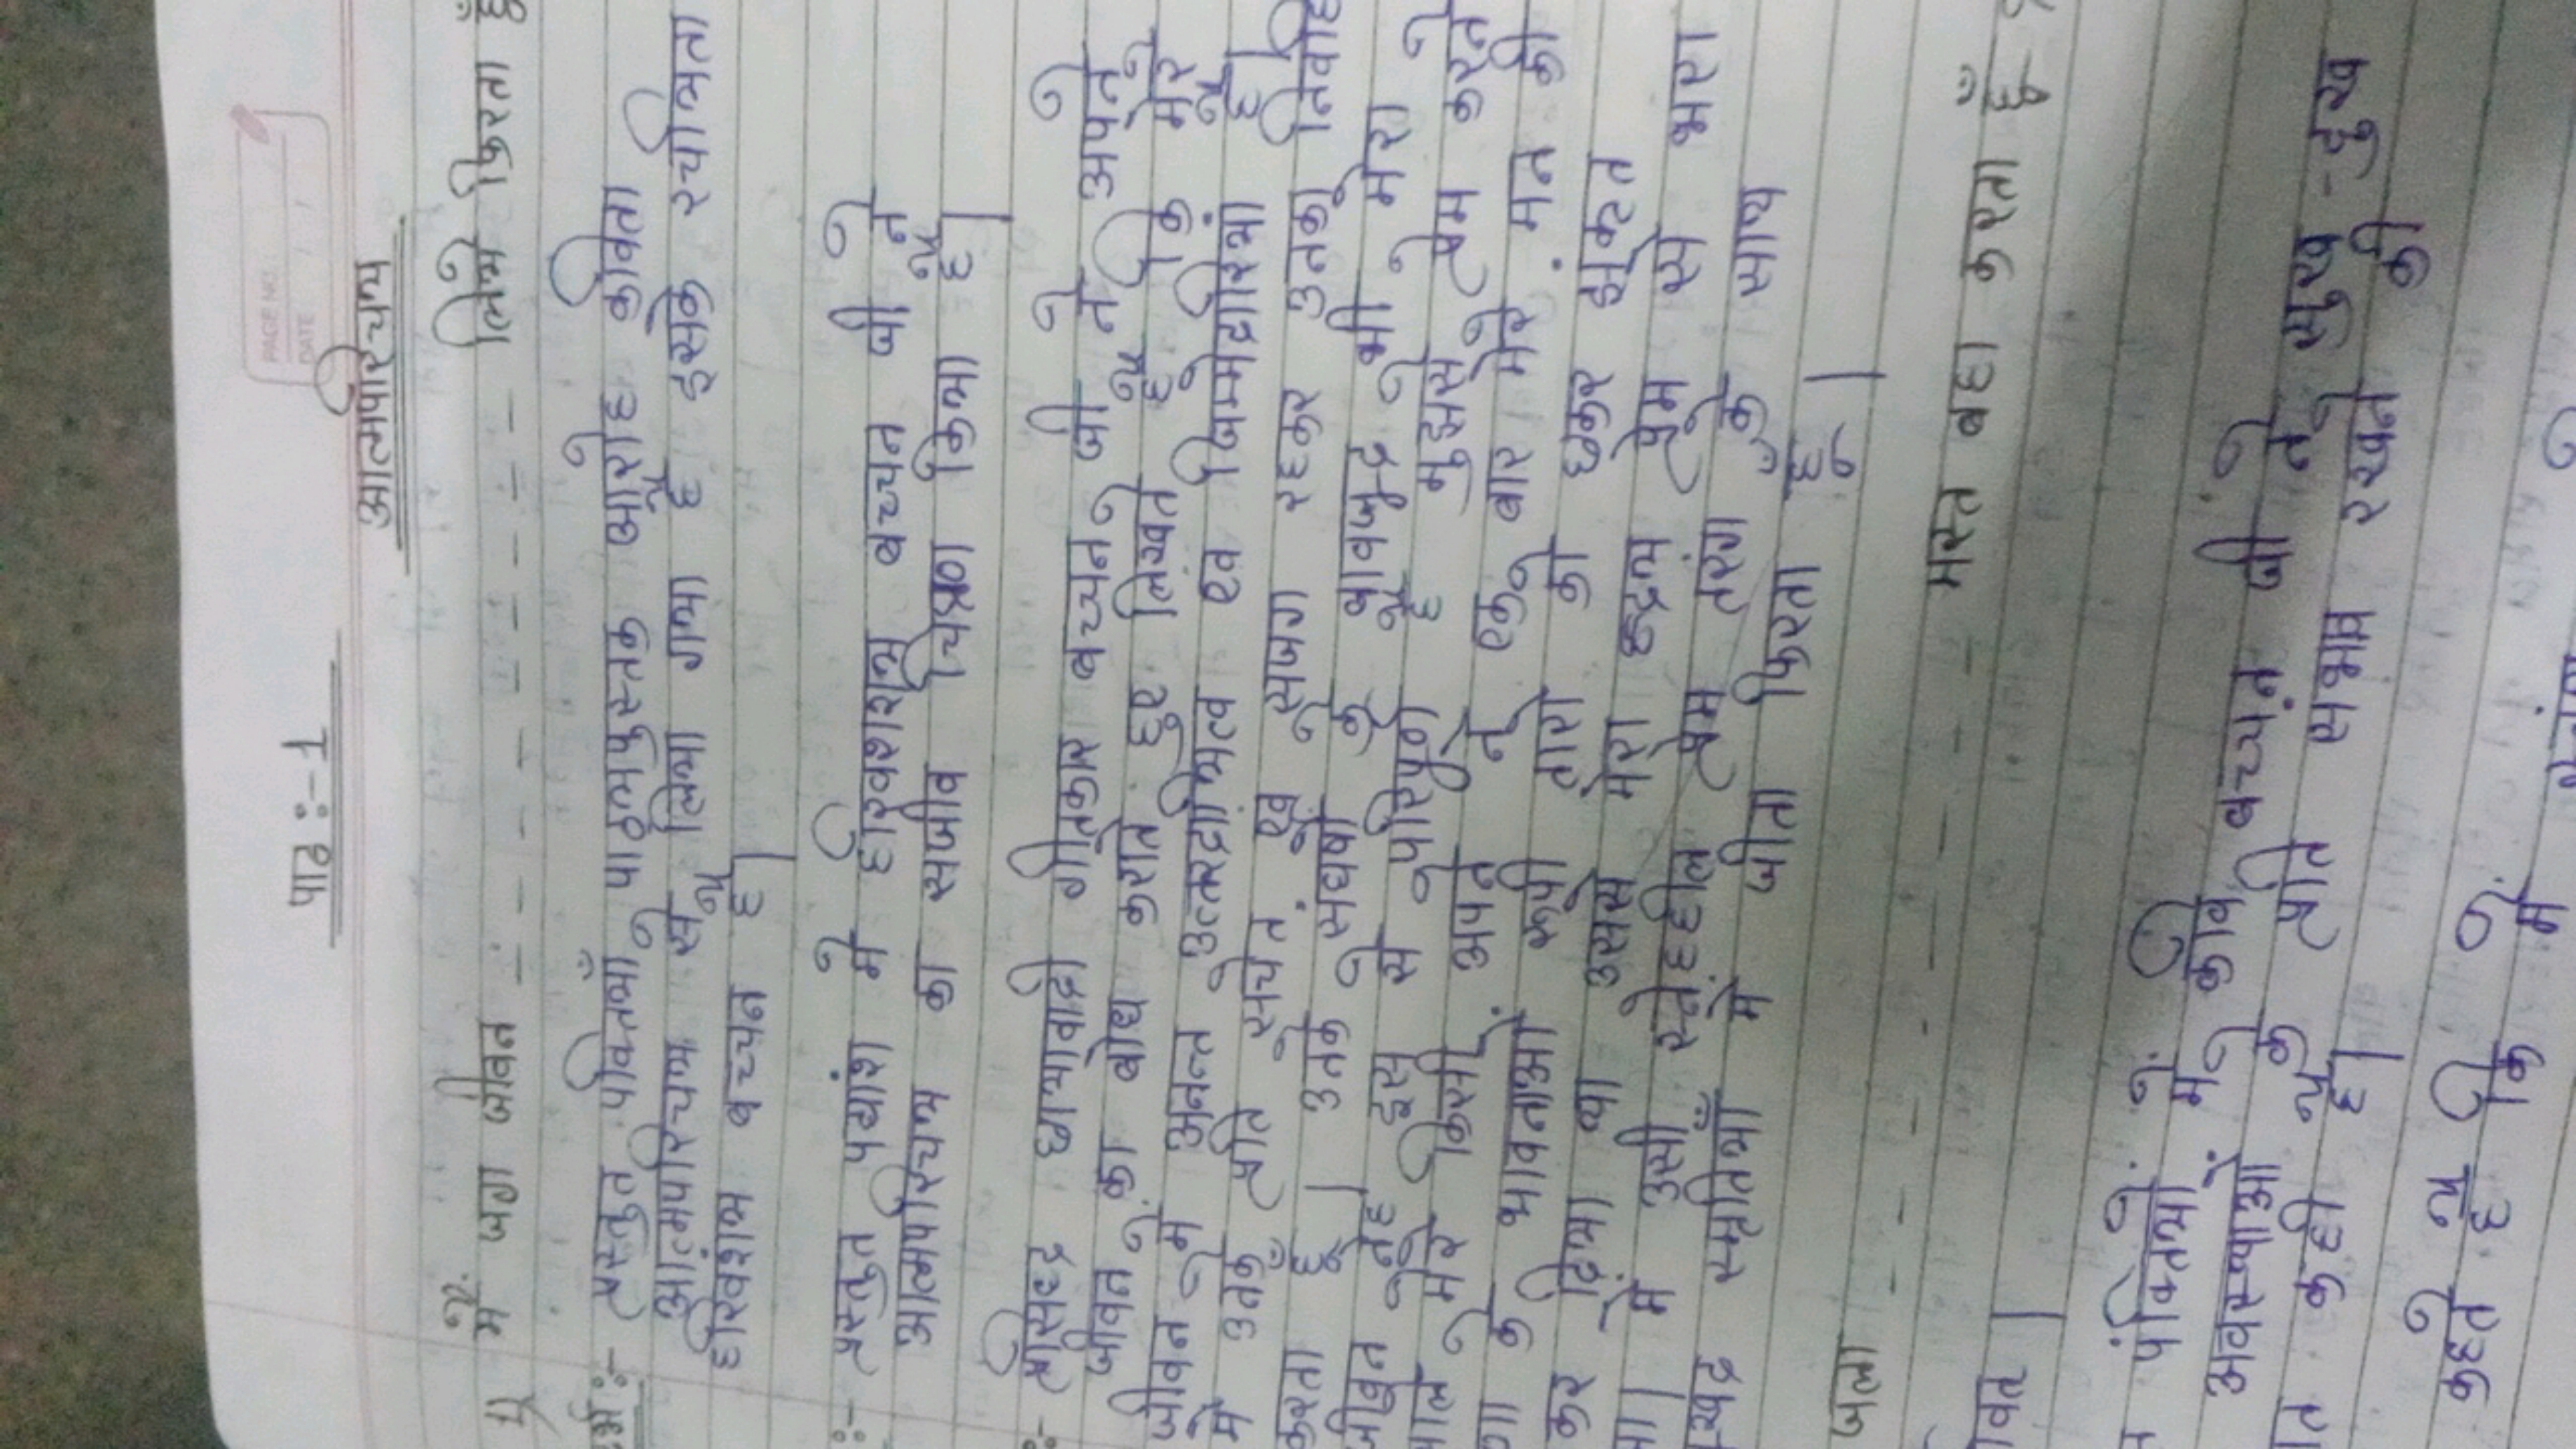 PAGE NO.
DATE
पाठ :- 1
आत्मपरिचय
मैं जग जीवन - - - - - - - - लिये फिरता हूँ
प्रस्तुत पंक्तियाँ पाठ्यपुस्तक आरोह कविता
आत्मपरिचय से लिया गया है इसके रचयिता
हरिवंशय बच्चन है।
:- प्रस्तुत पद्यांश में हरिवंशराय बच्चन जी ने
आत्मपरिचय का सजीव चित्रण किया है।
:- प्रसिद्ध छायावादी गीतकार बच्चन जी ने अपने
जीवन का बोध कराते हुए लिखते है कि मेरे
जीवन में अनन्त उत्तरदायित्व एवं जिम्मेदारियां है।
में उनके प्रति सचेत एवं सजग रहकर उनका निर्वाह
करता हूँ। उनके संघर्षो के बावजूद भी मेरा
जीवन नेह इस से परिपूर्ण है मुझसे प्रेम करने
वाले मेरे किसी अपने ने एक बार मेरे मन की
भावनाओं रूपी तारों को छूकर झंकृत
कर दिया था उससे मेरा हृदय प्रेम से भरा
में उसी स्नेहहील प्रेम तरंग के साथ
स्मृतियाँ में जीता फिरता हूँ।
जला - - - - - - - - मस्त बहा करता हूँ
पंक्तियों में कवि बच्चन जी ने सुख-दुख
अवस्थाओं के प्रति समभाव रखने की
कही है।
कहते है कि में